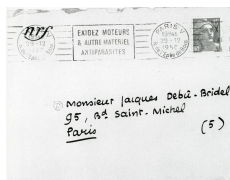 nrf
EXIGEZ MOTEURS
& AUTRE MATERIEL
ANTIPARASITES
PARIS V
19-12
1947
Monsieur Jacques Debû-Bridel
95, Bd Saint-Michel
Paris (5)